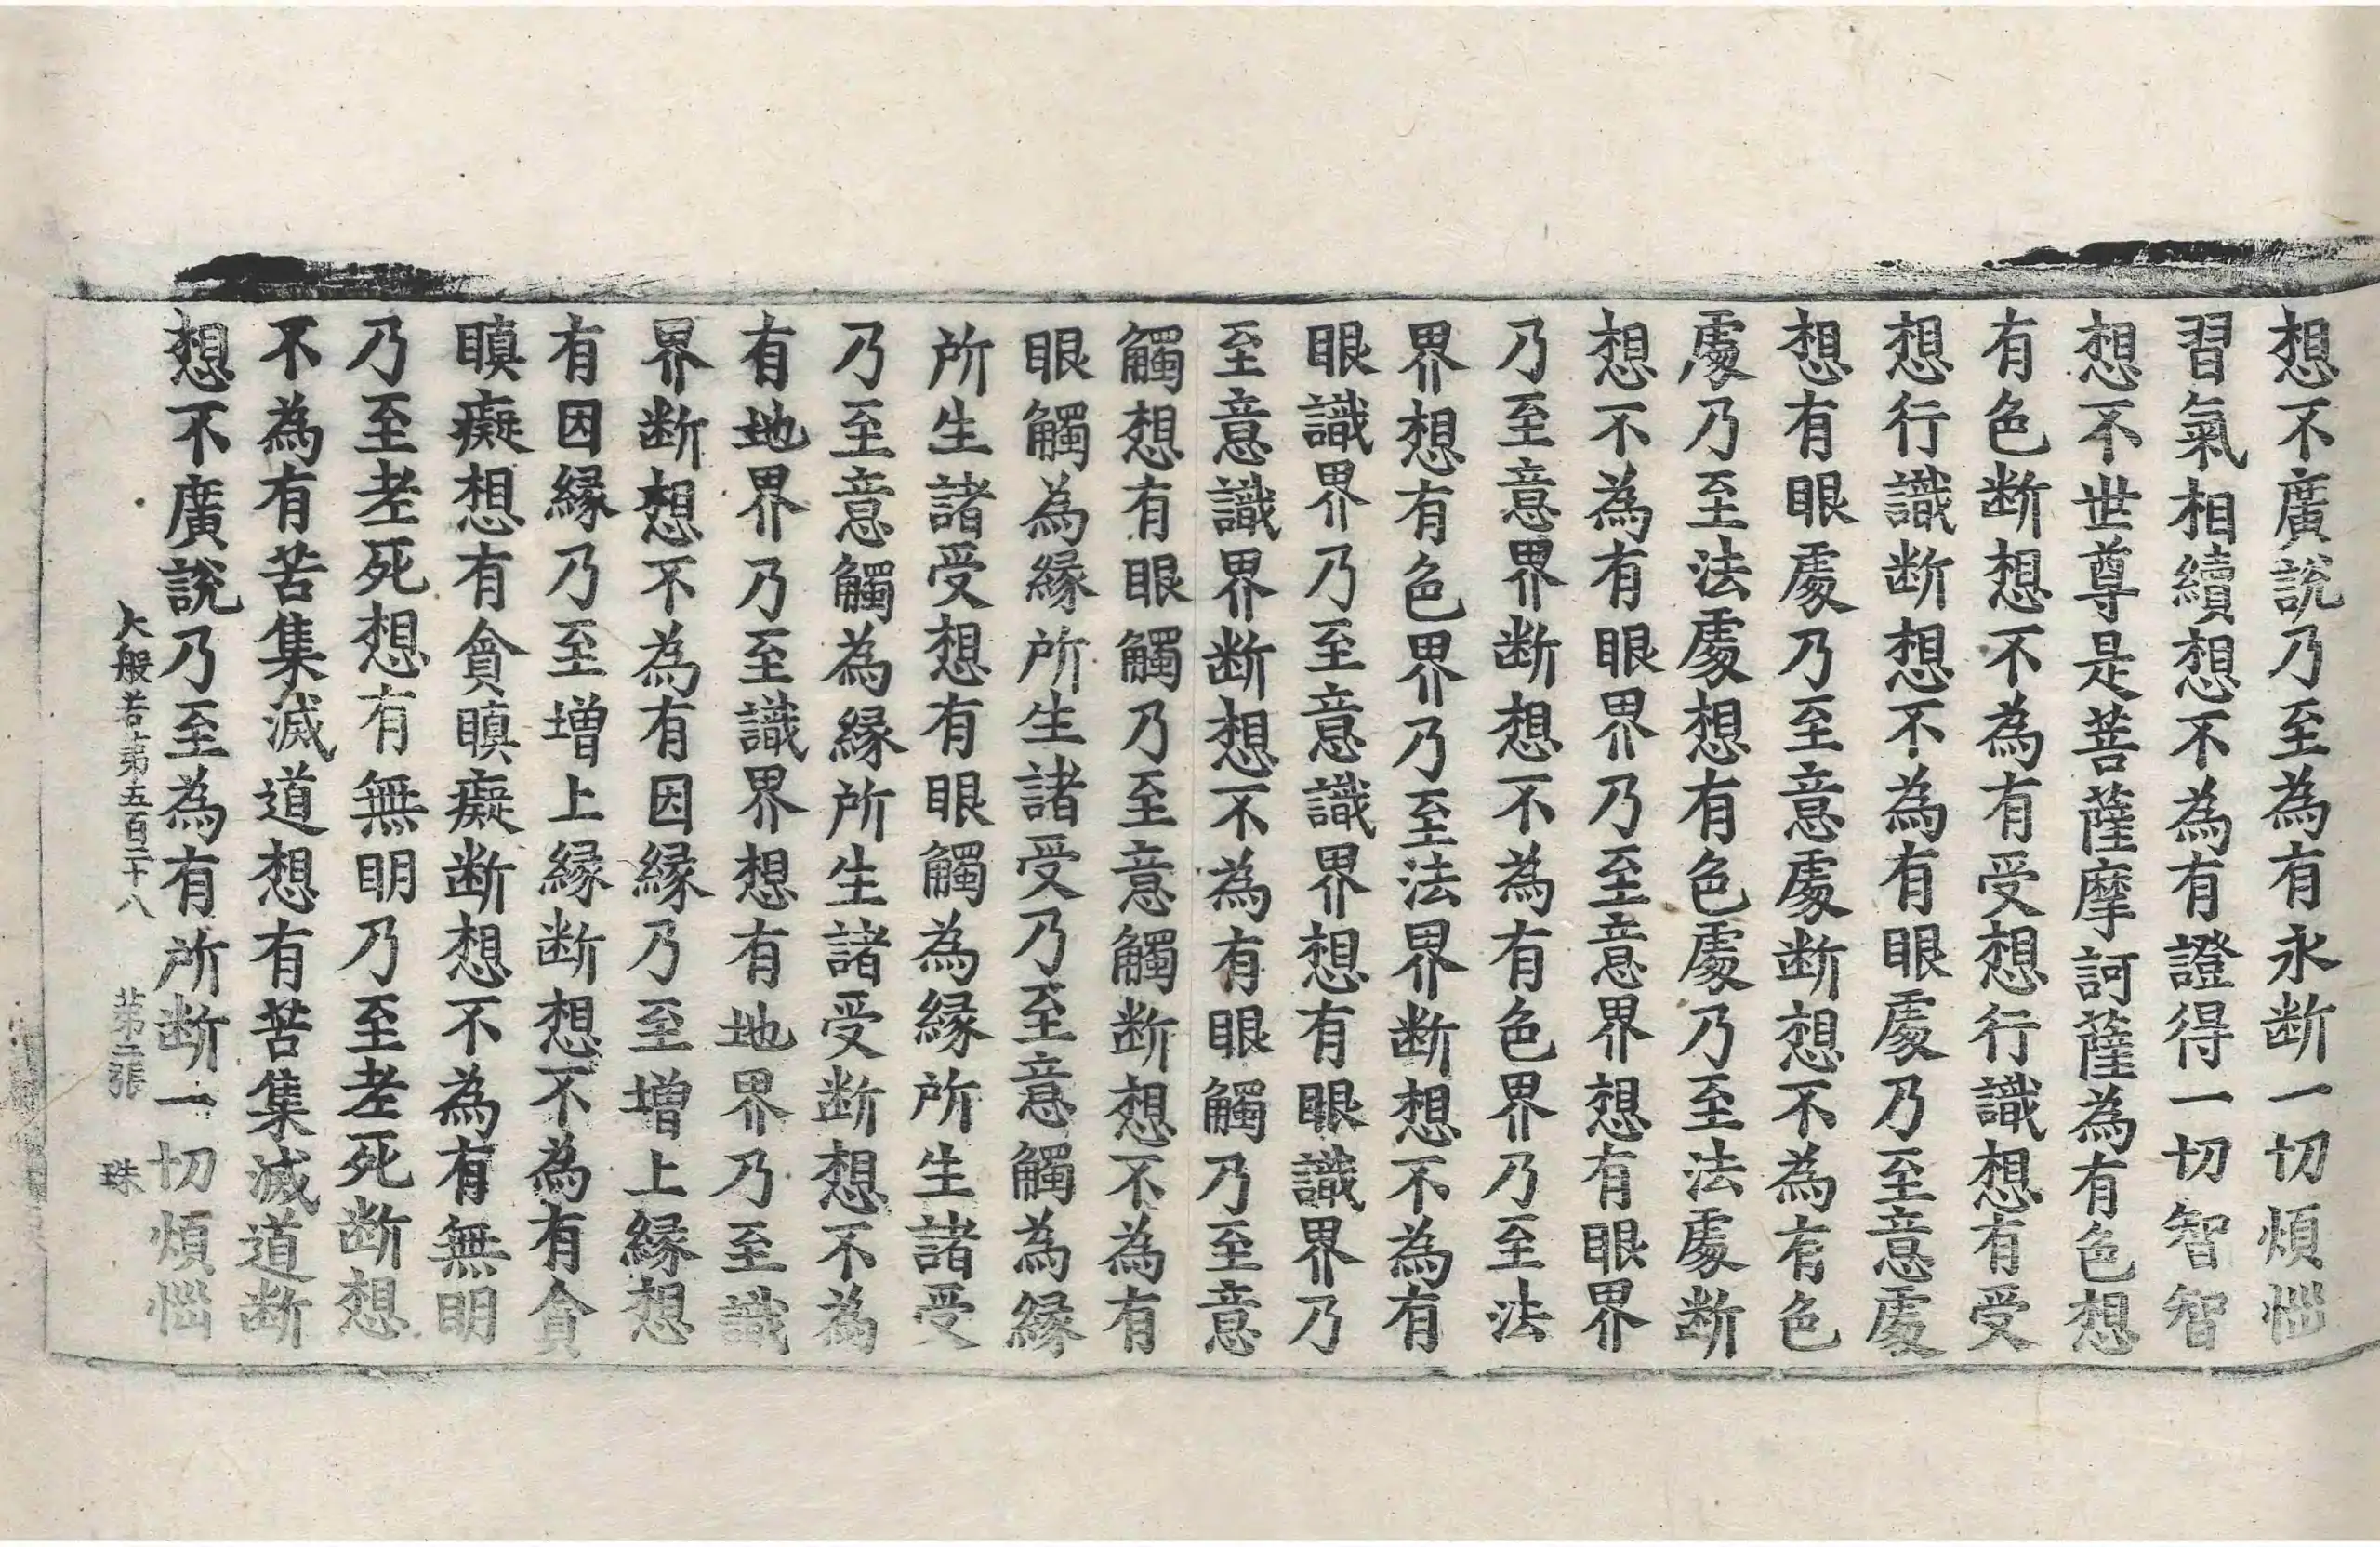 想不廣說乃至為有永断一切煩惱
習氣相續想不為有證得一切智智
想不世尊是菩薩摩訶薩為有色想
有色断想不為有受想行識想有受
想行識断想不為有眼處乃至意處
想有眼處乃至意處断想不為有色
處乃至法處想有色處乃至法處断
想不為有眼界乃至意界想有眼界
乃至意界断想不為有色界乃至法
界想有色界乃至法界断想不為有
眼識界乃至意識界想有眼識界乃
至意識界断想不為有眼觸乃至意
觸想有眼觸乃至意觸断想不為有
眼觸為縁所生諸受乃至意觸為縁
所生諸受想有眼觸為縁所生諸受
乃至意觸為縁所生諸受断想不為
有地界乃至識界想有地界乃至識
界断想不為有因縁乃至增上縁想
有因縁乃至增上縁断想不為有貪
瞋癡想有貪瞋癡断想不為有無明
乃至老死想有無明乃至老死断想
不為有苦集滅道想有苦集滅道断
想不廣說乃至為有所断一切煩惱
大般若第五百二十八 第二張 珠